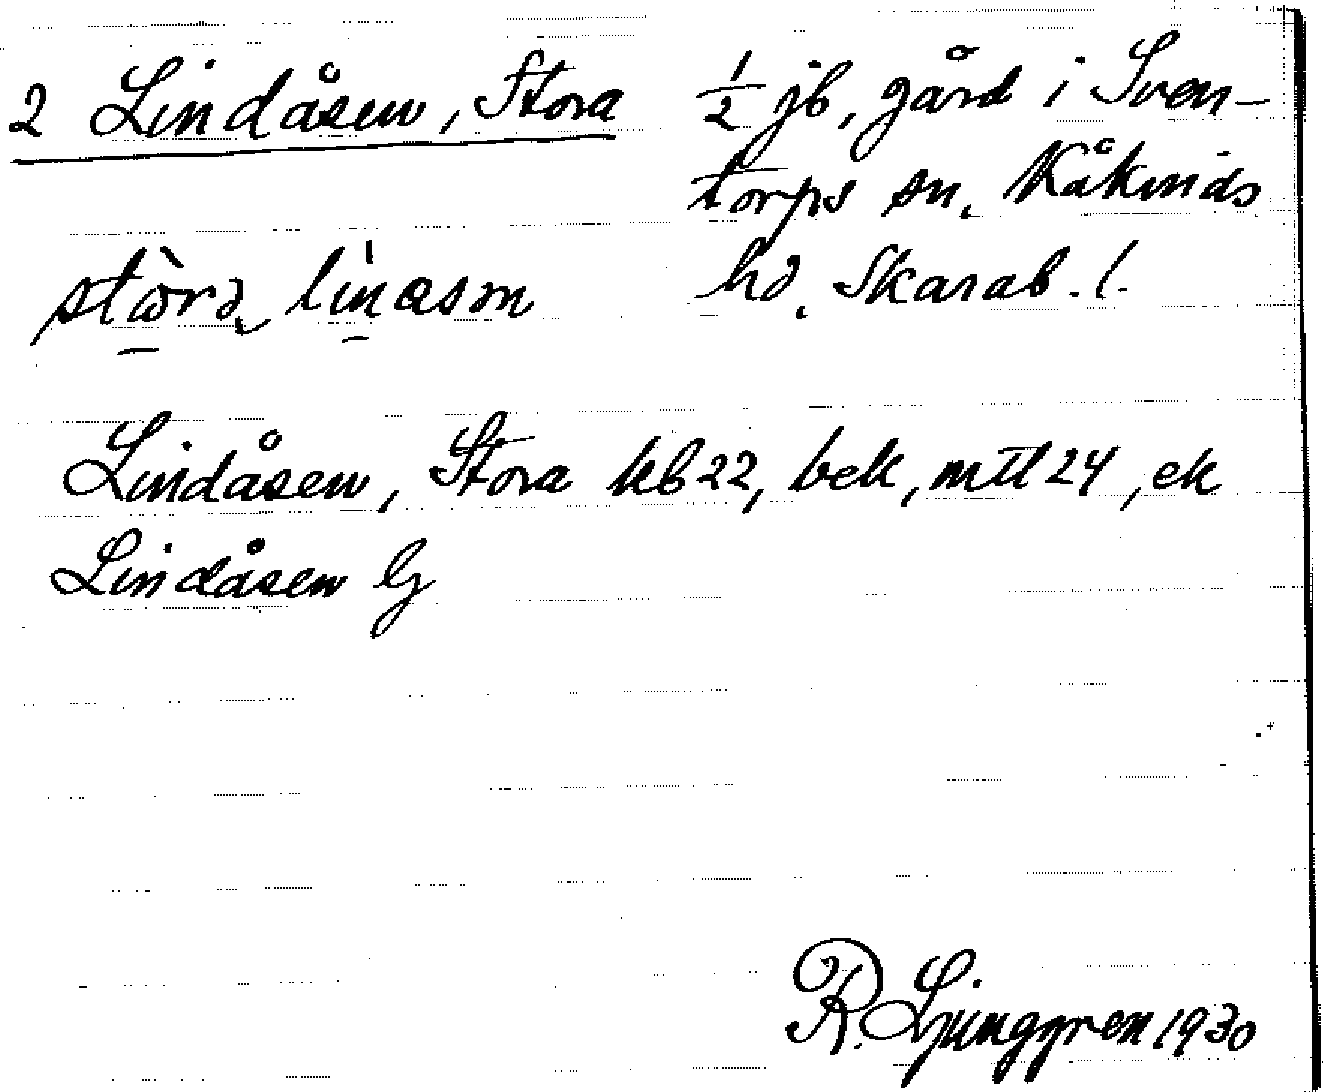 2 Lindåsen, Stora ½ jb, gård i Sven-
torps sn. Kåkinds
hd. Skarab. l.
stòra lìnåsm
Lindåsen, Stora kb 22, bek, mtl 24, ek
Lindåsen G
R. Ljunggren 1930